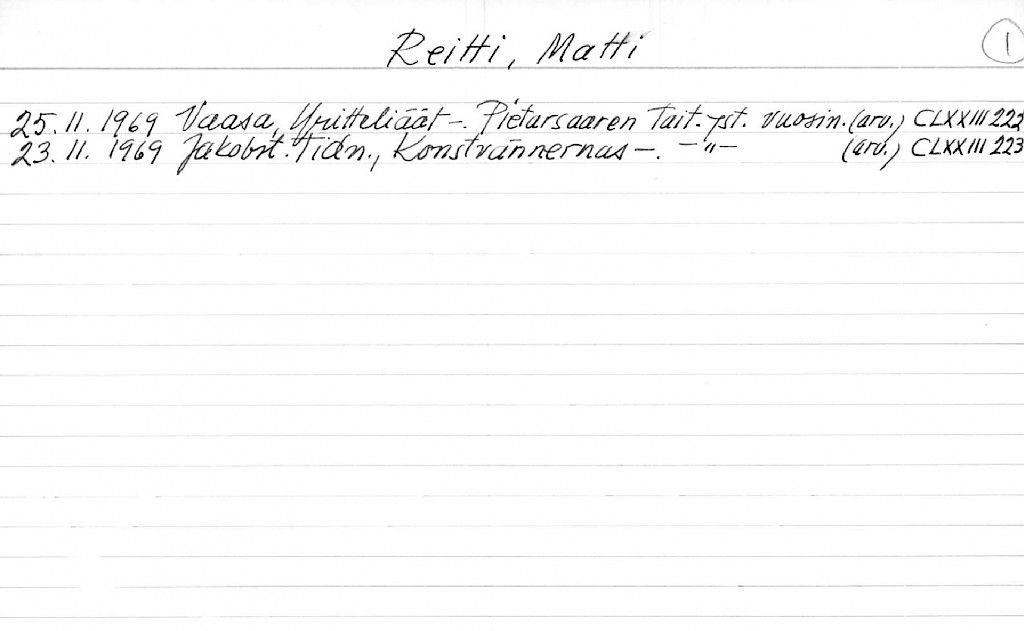 Reitti, Matti
1
25.11.1969 Vaasa, Yritteliäät -. Pietarsaaren Tait. yst. vuosin. (arv.) CLXXIII 222
23.11.1969 Jakobst. Tidn., Konstvännernas -. -"- (arv.) CLXXIII 223